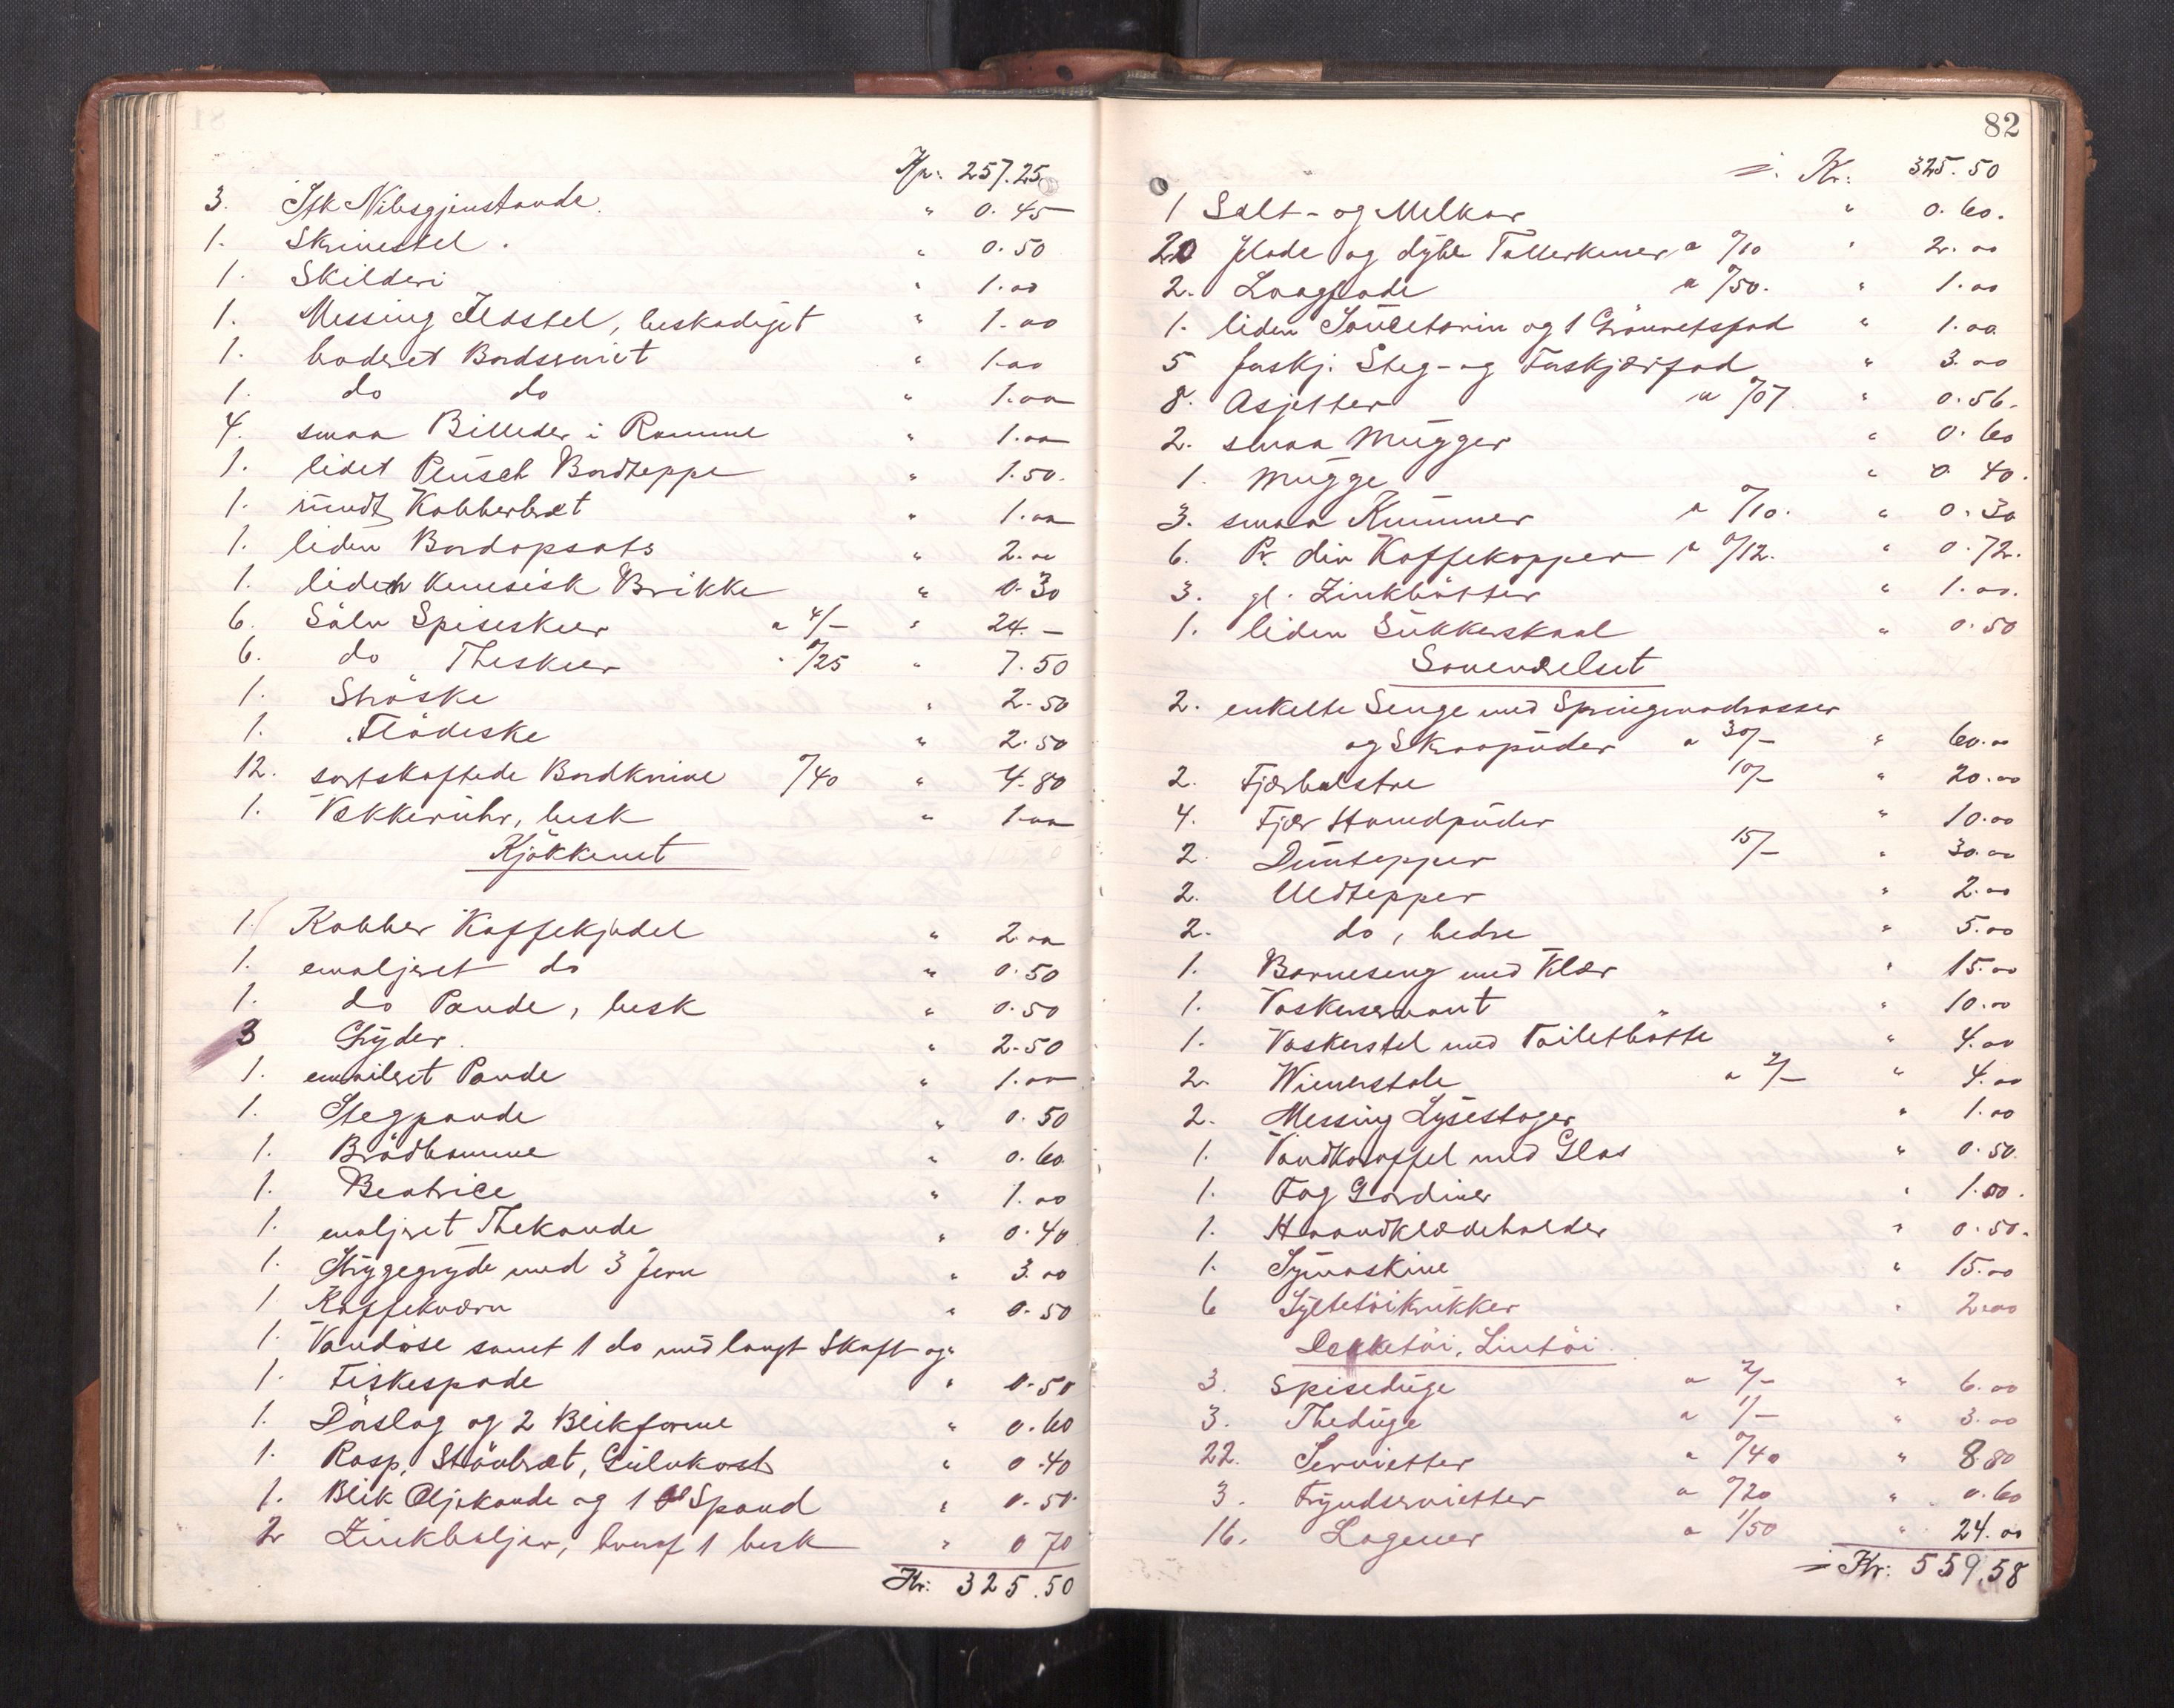 Kr: 257.25
3. Stk Nibsgjenstande. " 0.45
1. Skrivestel. " 0.50
1. Skilderi " 1.00
1. Messing beskadiget " 1.00
1. boderet Bordserviet " 1.00
1. do do " 1.00
4. smaa Billeder i Ramme " 1.00
1. lidet Plüsch Bordteppe " 1.50.
1. rundt Kobberbræt " 1.00
1. liden Bordopsats " 2.00
1. liden kinesisk Brikke " 0.30
6. Sölv Spiseskeer a 4/- " 24.-
6. do Theskeer " 1/25 " 7.50
1. Ströske " 2.50
1. Flödeske " 2.50
12. sortskaftede Bordknive 0/40 " 4.80
1. Vækkeruhr, besk " 1.00
Kjökkenet
1. Kobber Kaffekjedel " 2.00
1. emaljeret do " 0.50
1. do Pande, besk " 0.50
3 Gryder. " 2.50
1. emaileret Pande " 1.00
1. Stegpande " 0.50
1. Brödbomme " 0.60
1. Beatrice " 1.00
1. emaljeret Thekande " 0.40
1. Strygegryde med 3 Jern " 3.00
1 Kaffekværn " 0.50
1. Vandöse samt 1 do med langt Skaft og
1. Fiskespade " 0.50
1. Dörslag og 2 Blikforme " 0.60
1. Rasp, Stövbræt, Gulvkost " 0.40
1. Blik Oljekande og 1 Spand " 0.50
2 Zinkbaljer, hvoraf 1 besk " 0 70
Kr: 325.50
82
Kr: 325.50
1 Salt- og Melkar " 0.60.
20 flade og dybe Tallerkener a 0/10 " 2.00
2. Laagfade a 0/50. " 1.00
1. liden Sauceterin og 1 Grönnetsfad " 1.00
5 forskj. Steg- og Fuskjærfad " 3.00
8. Asjetter a 0/07 " 0.56.
2. smaa Mugger " 0.60
1. Mugge " 0.40.
3. smaa Kummer a 0/10. " 0.30
6. Pr. div Kaffekopper a 0/12. " 0.72.
3. gl. Zinkbötter " 1.00.
1. liden Sukkerskaal " 0.50
Soveværelset
2. enkelte Senge med Springmadrasser
og Skraapuder a 30/- " 60.00
2. Fjærbolstre 10/- " 20.00
4. Fjær Hovedpuder " 10.00
2. Duntepper 15/- " 30.00
2. Uldtepper " 2.00
2. do, bedre " 5.00
1. Barneseng med Klær " 15.00
1. Vaskeservant " 10.00
1. Vaskerstel med Toiletbötte " 4.00
2. Wienerstole a 2/- " 4.00
2. Messing Lysestager " 1.00
1. Vandkaraffel med Glas " 0.50.
1. Fag Gardiner " 1.00.
1. Haandklædeholder " 0.50.
1. Symaskine " 15.00
6 Syltetöikrukker " 2.00
Dekketöi, Lintöi
3. Spiseduge a 2/- " 6.00
3. Theduge a 1/- " 3.00
22. Servietter a 0/40 " 8.80
3. Fryndservietter a 0/20 " 0.60
16. Lagener a 1/50 " 24.00
Kr: 559.58